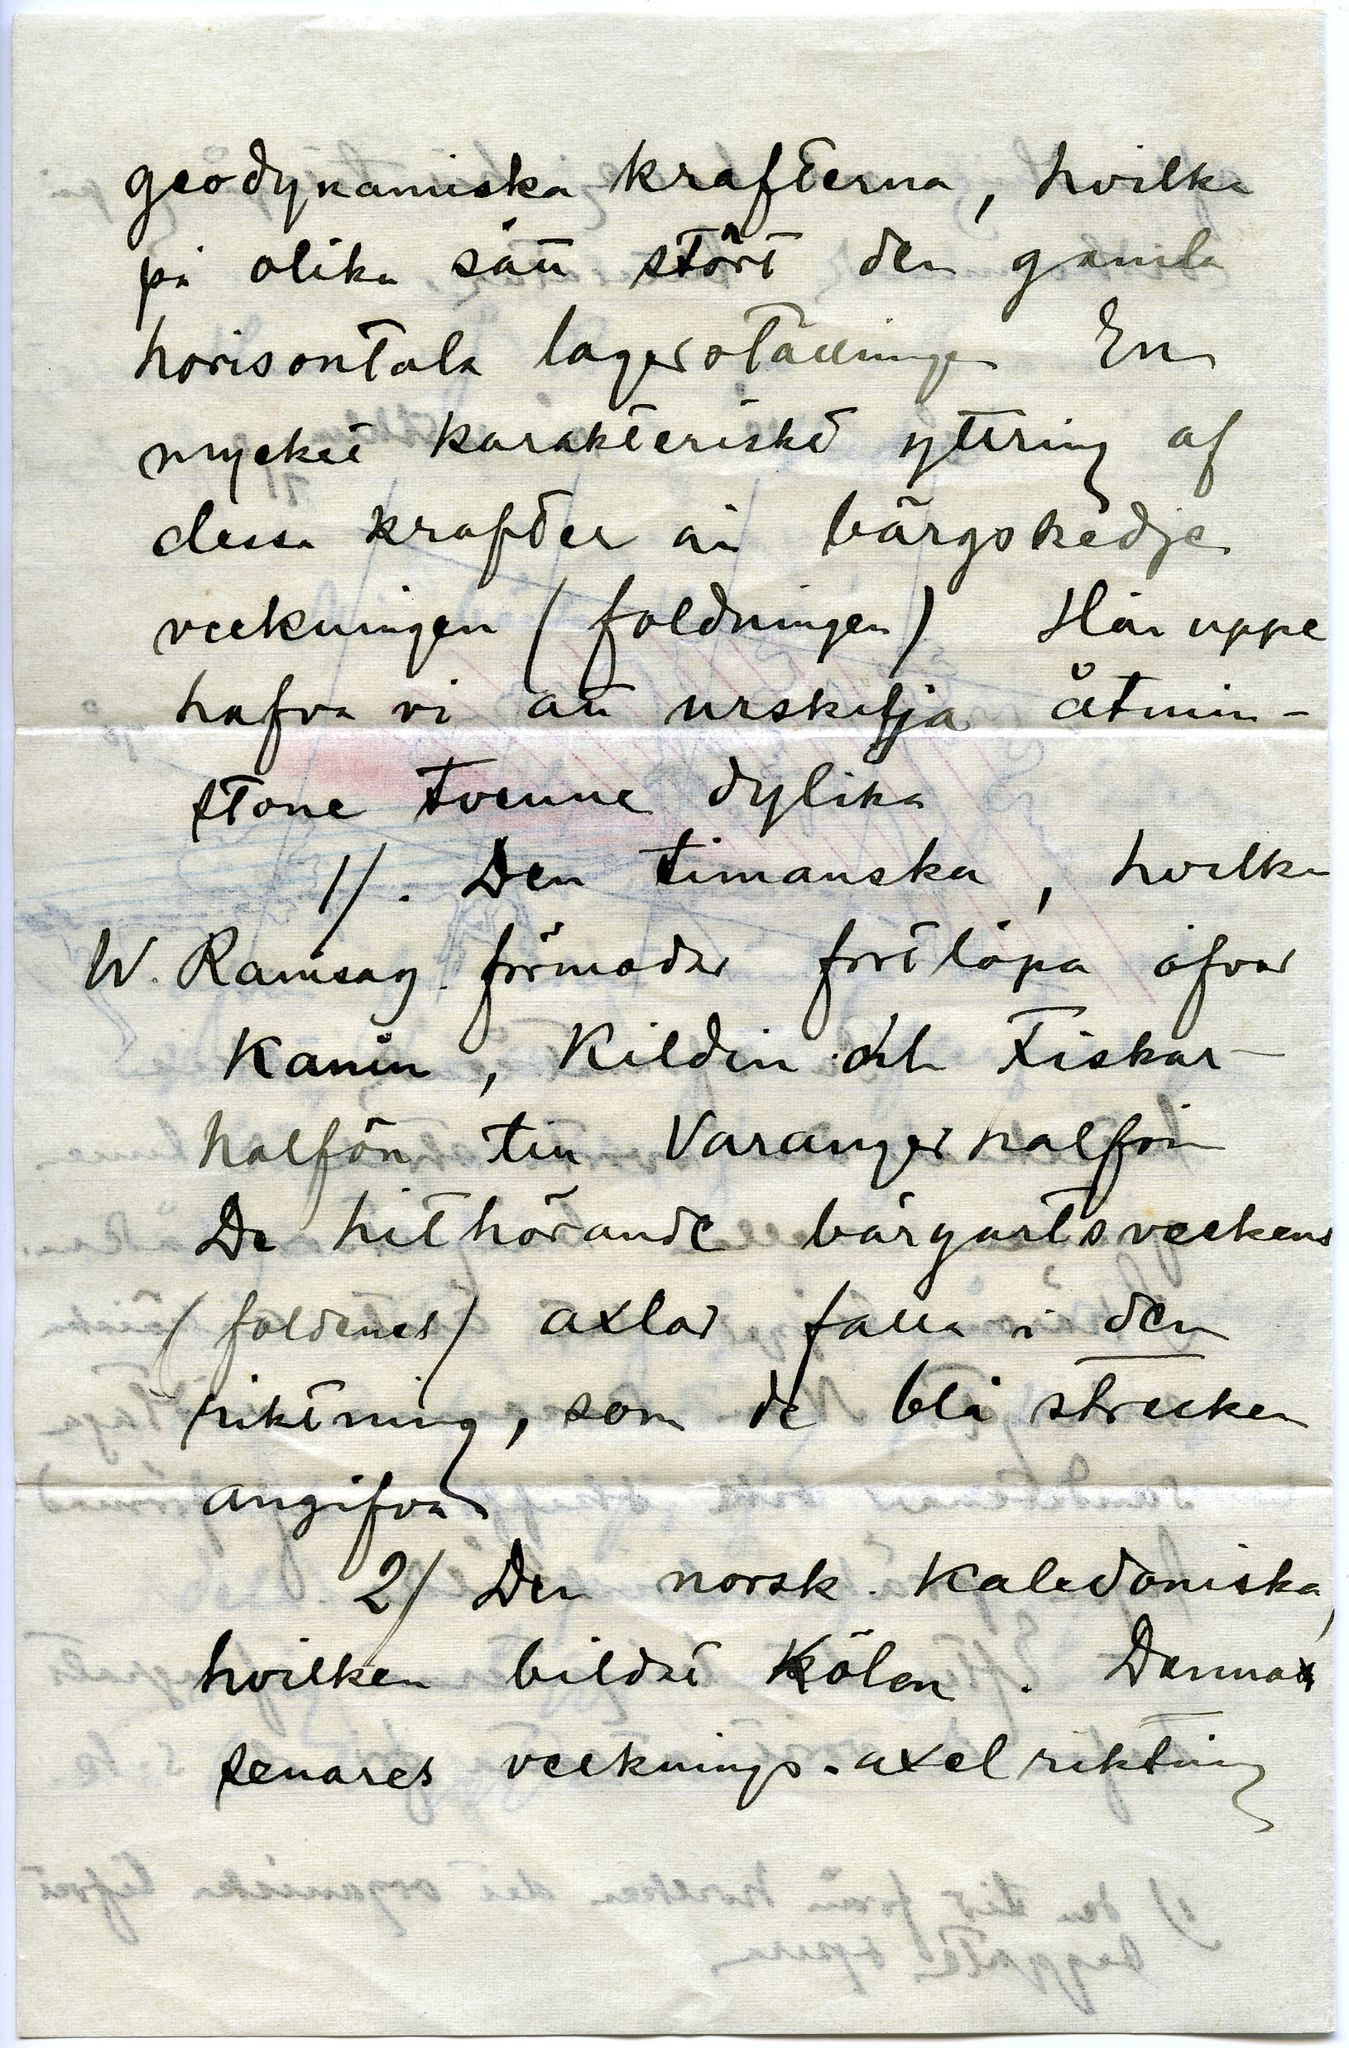 geodynamiska krafterna, hvilka
på olika sätt stört den gamla
horisontala lagerställningen En
mycket karakteristisk yttring af
dessa krafter är bärgskedje
veckningen (foldningen) Här uppe
hafva vi att urskilja åtmin-
stone tvenne dylika
1/. Den timanska, hvilken
W. Ramsay förmodar fortlöpa öfver
Kanin, Kildin och Fiskar-
halfön till Varangerhalfön
De hithörande bärgartsveckens
(foldenes) axlar falla i den
riktning, som de blå strecken
angifva
2/ Den norsk. Kaledoniska,
hvilken bildat Kölen. Denna
senares vecknings-axelriktning